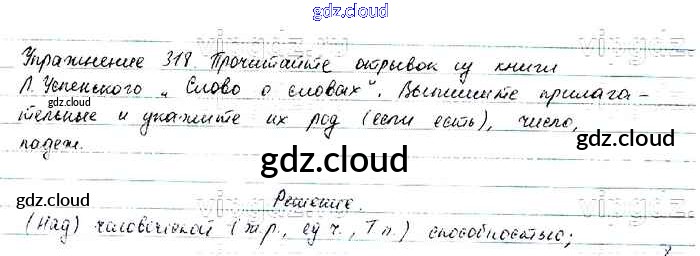 gdz.cloud
Упражнение 318 Прочитайте отрывок из книги
Л. Успенского "Слово о словах". Выпишите прилага-
gdz.cloud gdz.cloud
тельные и укажите их род (если есть), число,
падеж.
gdz.cloud
gdz.cloud gdz.cloud
Решение.
(Над) человеческой (ж.р., ед.ч., Т.п.) способностью;